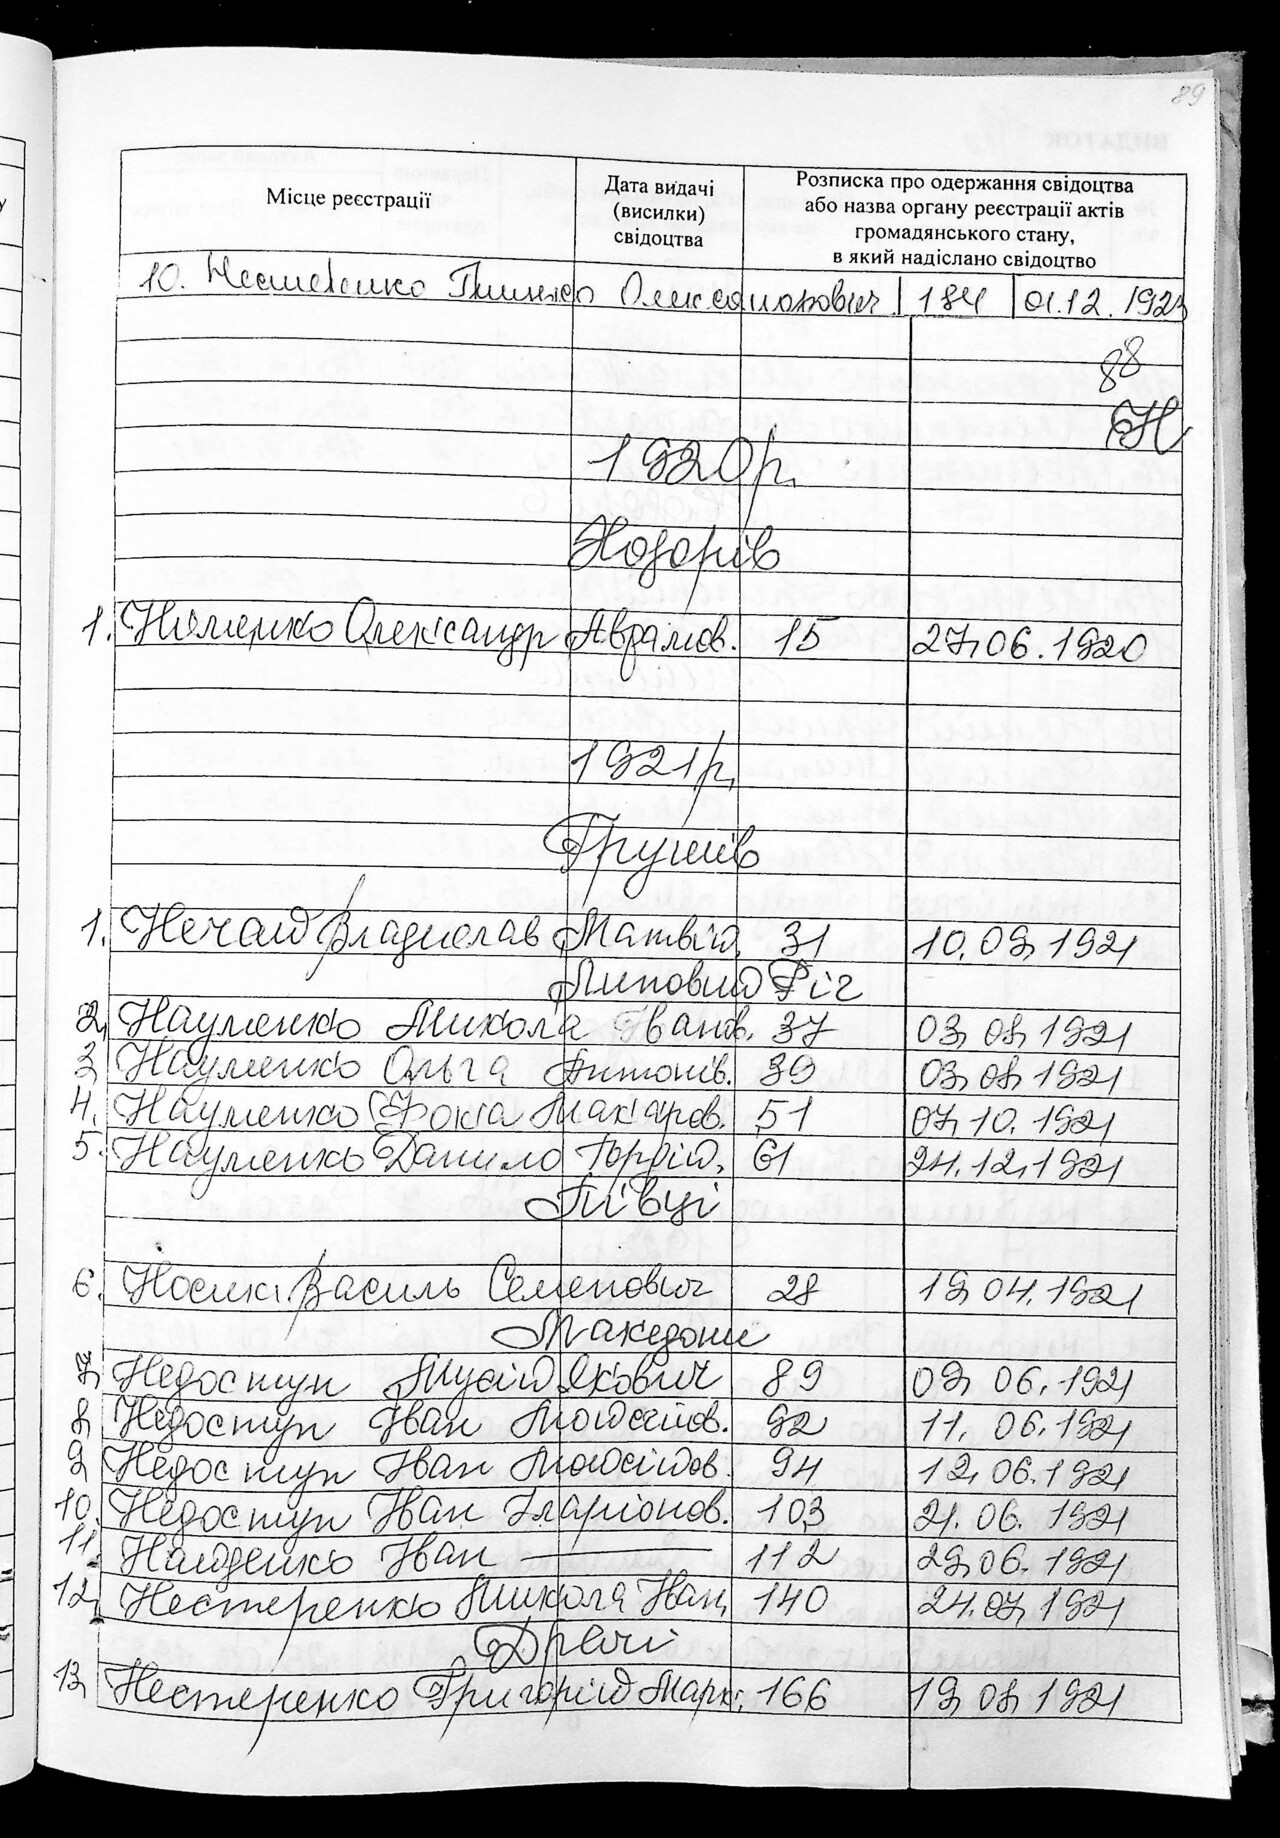 89
Місце реєстрації
Дата видачі
(висилки)
свідоцтва
Розписка про одержання свідоцтва
або назва органу реєстрації актів
громадянського стану,
в який надіслано свідоцтво
10. Олександрович 184 01.12.1923
88
Н
1920р.
Ходорів
1. Олександр Аврамов. 15 27.06.1920
1921р.
Грушів
1. Нечай Владислав Матвій. 31 10.09.1921
Липовий Ріг
2. Науменко Микола Іванов. 37 03.08.1921
3. Науменко Ольга Антонів. 39 03.08.1921
4. Науменко Фокіа Макаров. 51 07.10.1921
5. Науменко Данило Гордій. 61 24.12.1921
Півці
6. Носик Василь Семенович 28 19.04.1921
Македони
7. Недоступ Мусій Якович 89 09.06.1921
8. Недоступ Іван Мойсейов. 92 11.06.1921
9. Недоступ Іван Мойсейов. 94 12.06.1921
10. Недоступ Іван Іларіонов. 103 21.06.1921
11. Найденко Іван — 112 29.06.1921
12. Нестеренко Микола Іван. 140 24.07.1921
13. Нестеренко Григорій Марк. 166 19.08.1921